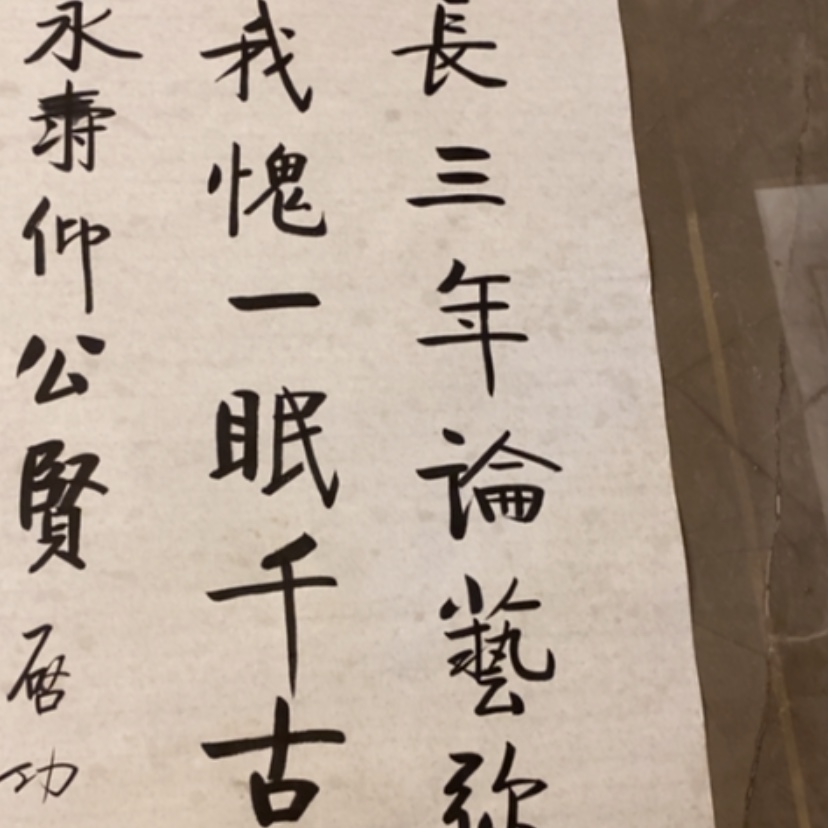 長三年論藝弥
我愧一眠千古
永壽仰公賢 啓功